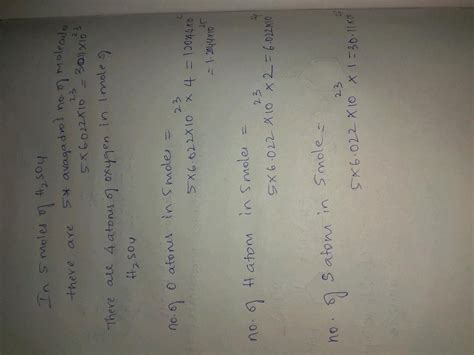 In 5 moles of H2SO4
there are 5 x avagadro's no of molecule
5 x 6.022 x 10^23 = 3011 x 10^23
There are 4 atoms of oxygen in 1 mole of
H2SO4
no. of O atoms in 5 moles =
5 x 6.022 x 10^23 x 4 =
= 1.2044 x 10^25
no. of H atom in 5 moles =
5 x 6.022 x 10^23 x 2 = 6.022 x 10
no. of S atom in 5 mole =
5 x 6.022 x 10^23 x 1 = 30.11 x 10